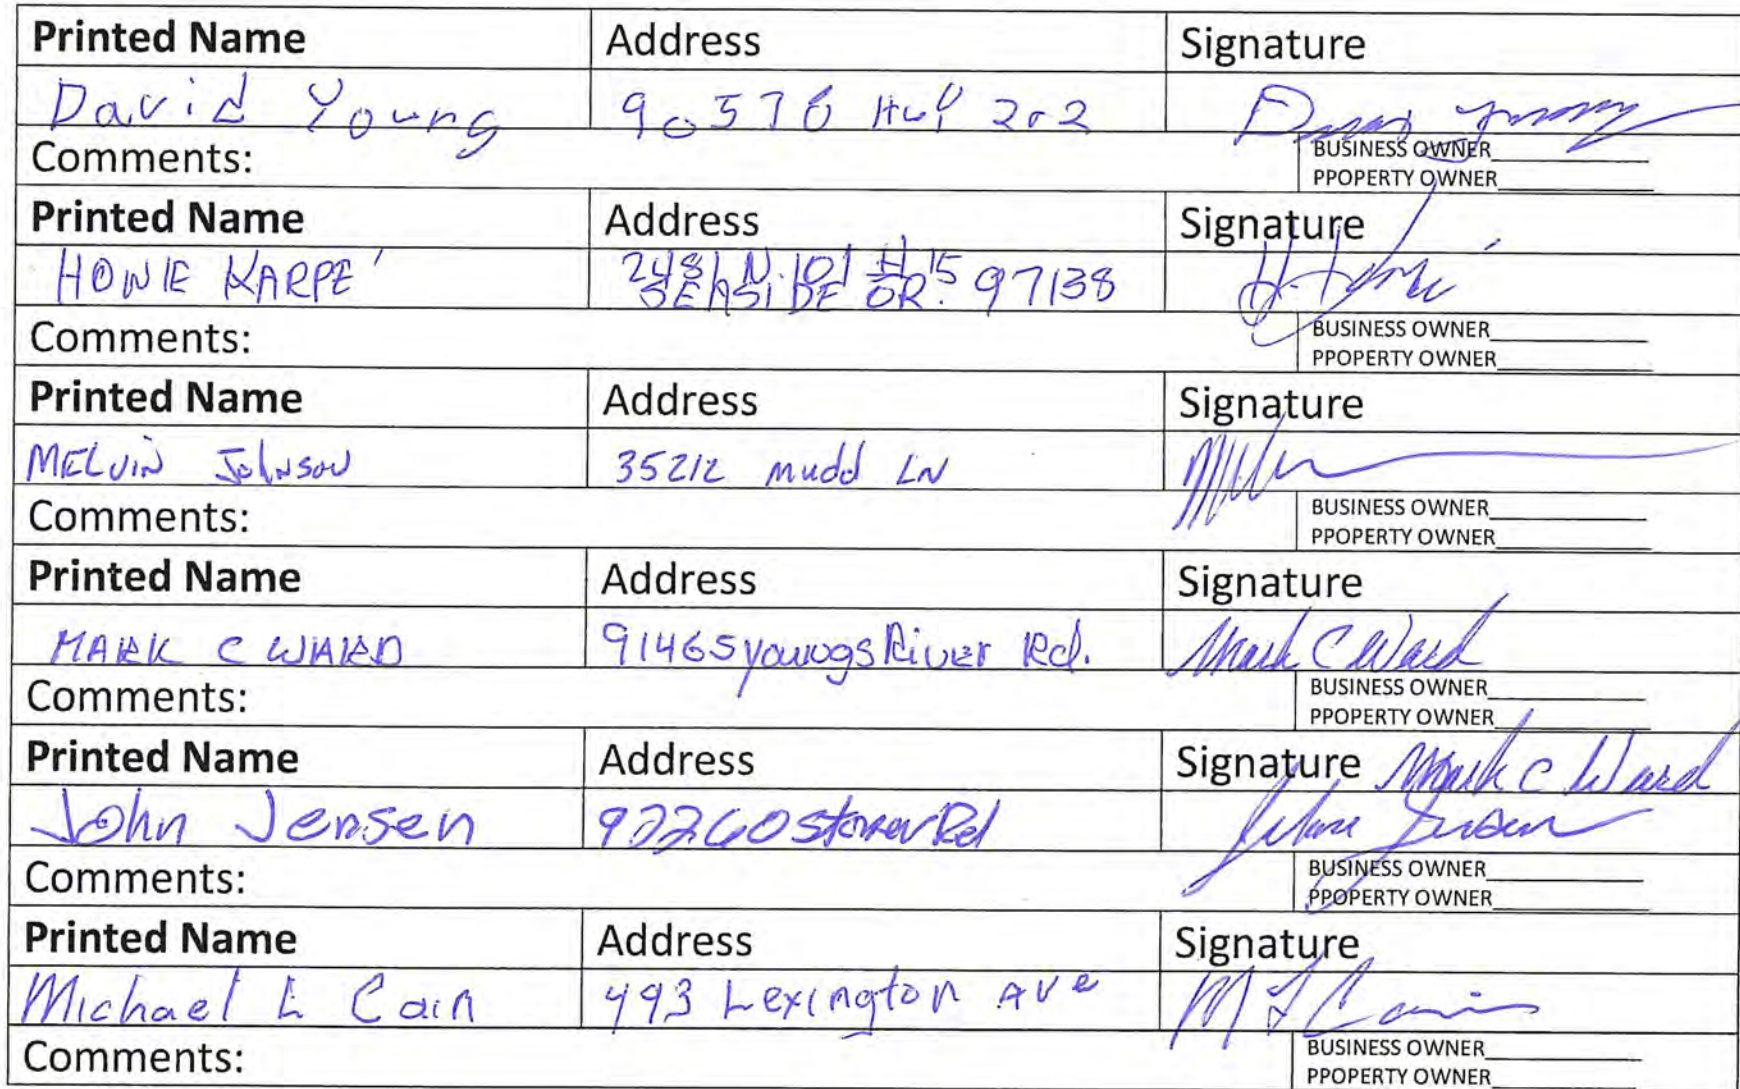 Printed Name Address Signature
David Young 90576 Hwy 202
Comments: BUSINESS OWNER
PPOPERTY OWNER
Printed Name Address Signature
HOWIE KARPE' 2481 N. 101 #15
SEASIDE OR. 97138
Comments: BUSINESS OWNER
PPOPERTY OWNER
Printed Name Address Signature
MELVIN Johnson 35212 mudd LN
Comments: BUSINESS OWNER
PPOPERTY OWNER
Printed Name Address Signature
MARK C WARD 91465 youngs River Rd. Mark C Ward
Comments: BUSINESS OWNER
PPOPERTY OWNER
Printed Name Address Signature Mark C Ward
John Jensen Rd John Jensen
Comments: BUSINESS OWNER
PPOPERTY OWNER
Printed Name Address Signature
Michael L Cain 493 Lexington Ave M L Cain
Comments: BUSINESS OWNER
PPOPERTY OWNER